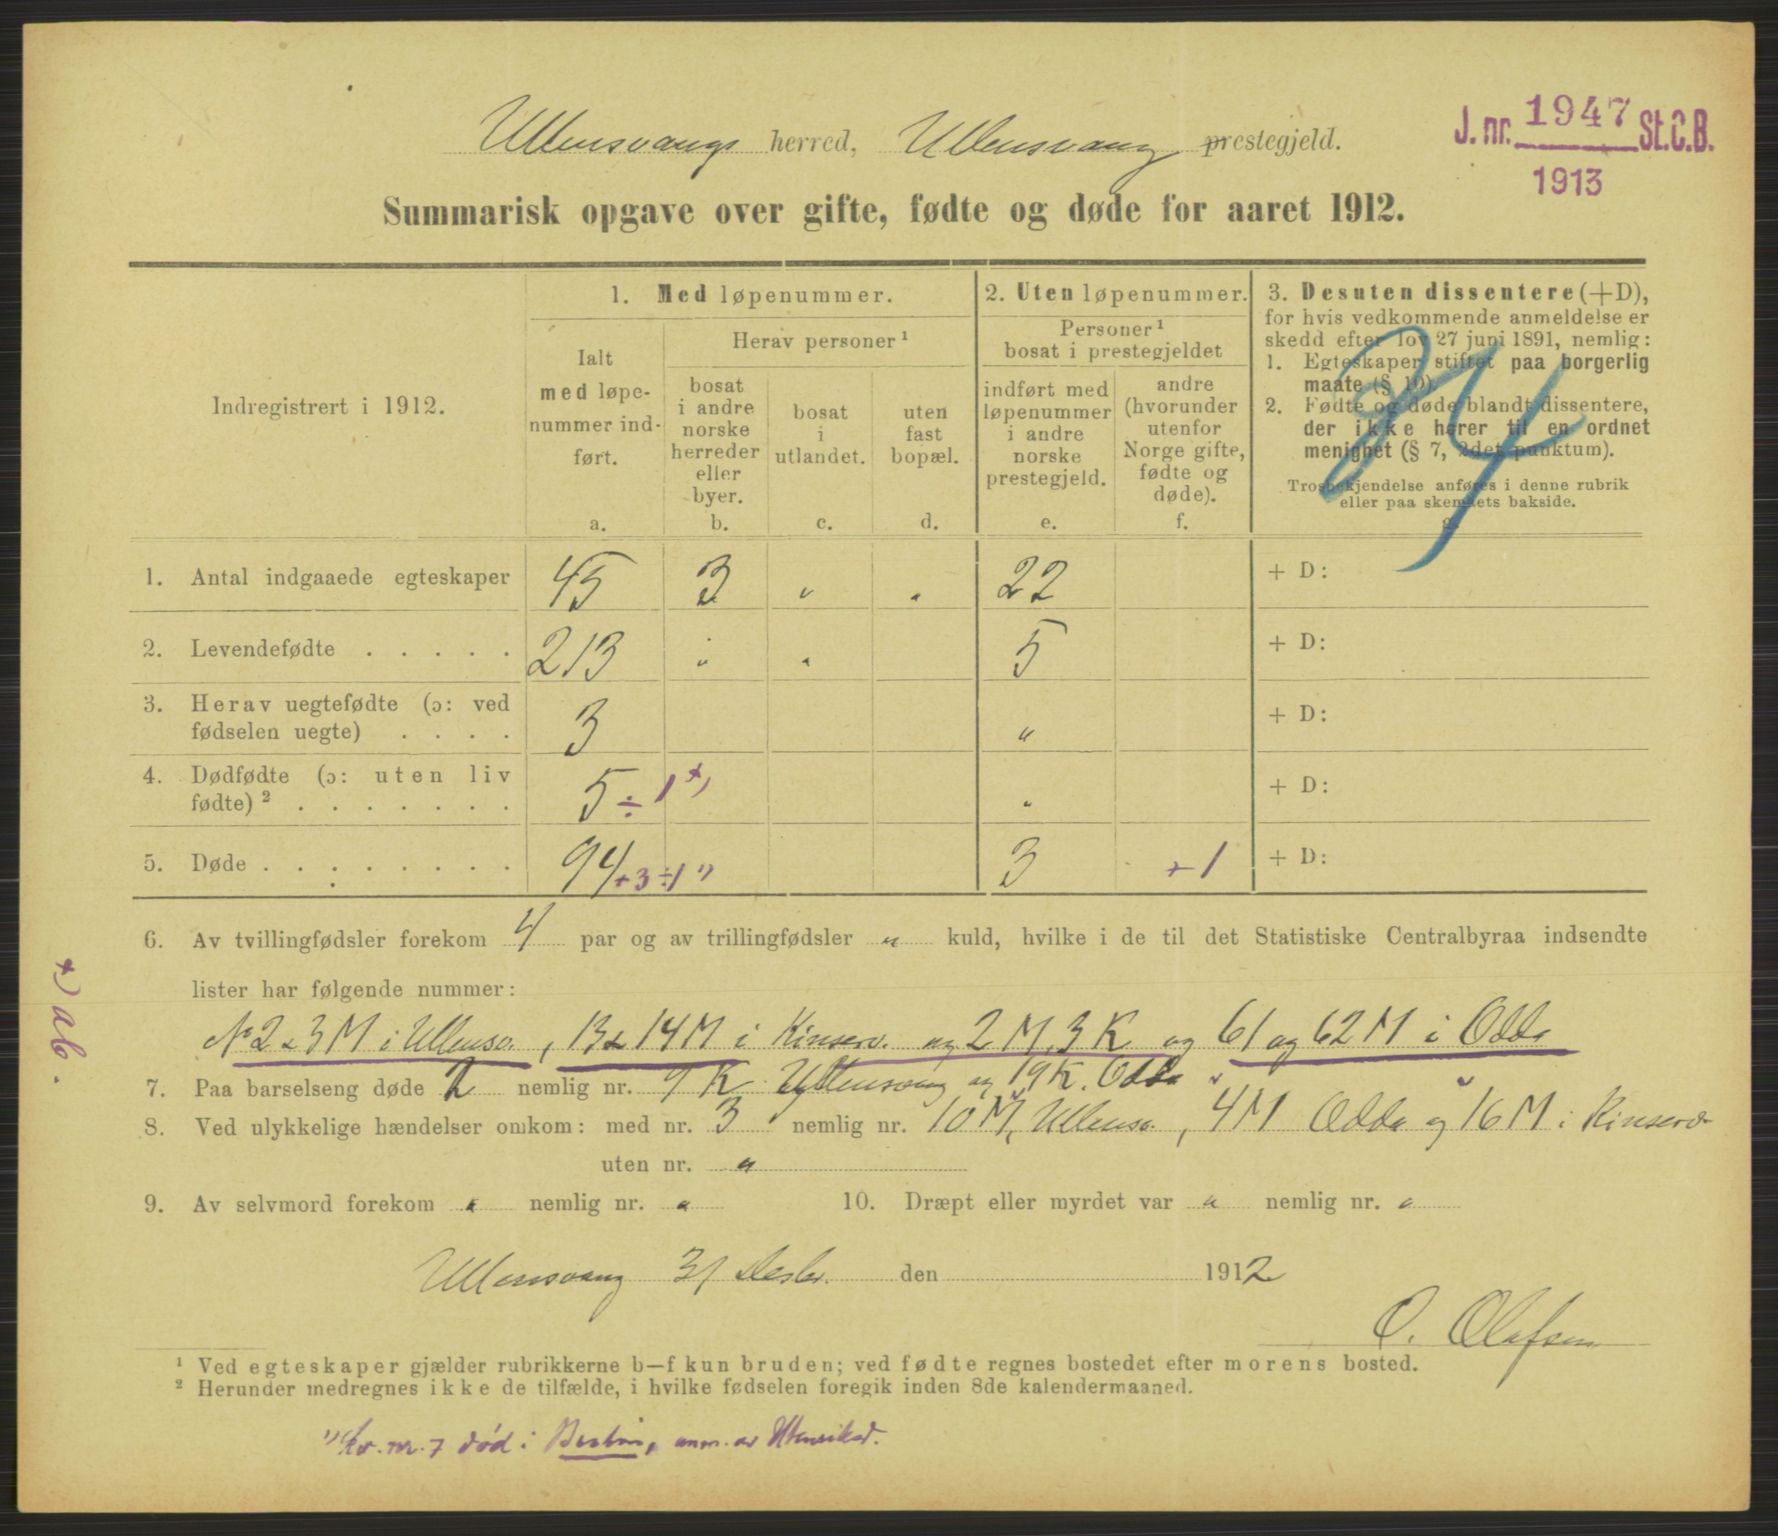 Ullensvangs herred, Ullensvang prestegjeld.
J. nr. 1947 St.C.B.
1913
Summarisk opgave over gifte, fødte og døde for aaret 1912.
Indregistrert i 1912.
1. Med løpenummer.
Ialt
med løpe-
nummer ind-
ført.
a.
Herav personer ¹
bosat
i andre
norske
herreder
eller
byer.
b.
bosat
i
utlandet.
c.
uten
fast
bopæl.
d.
2. Uten løpenummer.
Personer ¹
bosat i prestegjeldet
indført med
løpenummer
i andre
norske
prestegjeld.
e.
andre
(hvorunder
utenfor
Norge gifte,
fødte og
døde).
f.
3. Desuten dissentere (+D),
for hvis vedkommende anmeldelse er
skedd efter lov 27 juni 1891, nemlig:
1. Egteskaper stiftet paa borgerlig
maate (§ 10).
2. Fødte og døde blandt dissentere,
der ikke hører til en ordnet
menighet (§ 7, 2det punktum).
Trosbekjendelse anføres i denne rubrik
eller paa skemaets bakside.
g.
1. Antal indgaaede egteskaper 45 3 " " 22 + D:
2. Levendefødte . . . . . 213 " " 5 + D:
3. Herav uegtefødte (ɔ: ved
fødselen uegte) . . . . 3 " + D:
4. Dødfødte (ɔ: uten liv
fødte) ² . . . . . . . 5 ÷ 1 ×) " + D:
5. Døde . . . . . . . . 94 +3 ÷1 ") 3 +1 + D:
6. Av tvillingfødsler forekom 4 par og av trillingfødsler " kuld, hvilke i de til det Statistiske Centralbyraa indsendte
lister har følgende nummer:
No 2 & 3 M i Ullensv., 13 & 14 M i Kinserv. og 2 M, 3 K og 61 og 62 M i Odda
7. Paa barselseng døde 2 nemlig nr. 9 K Ullensvang og 19 K. Odda
8. Ved ulykkelige hændelser omkom: med nr. 3 nemlig nr. 10 M, Ullensv., 4 M Odda og 16 M i Kinserv
uten nr. "
9. Av selvmord forekom " nemlig nr. " 10. Dræpt eller myrdet var " nemlig nr. "
Ullensvang 31 Desbr. den 1912
O. Olafsen
¹ Ved egteskaper gjælder rubrikkerne b—f kun bruden; ved fødte regnes bostedet efter morens bosted.
² Herunder medregnes ikke de tilfælde, i hvilke fødselen foregik inden 8de kalendermaaned.
") Kv. nr. 7 død i
×) ab.